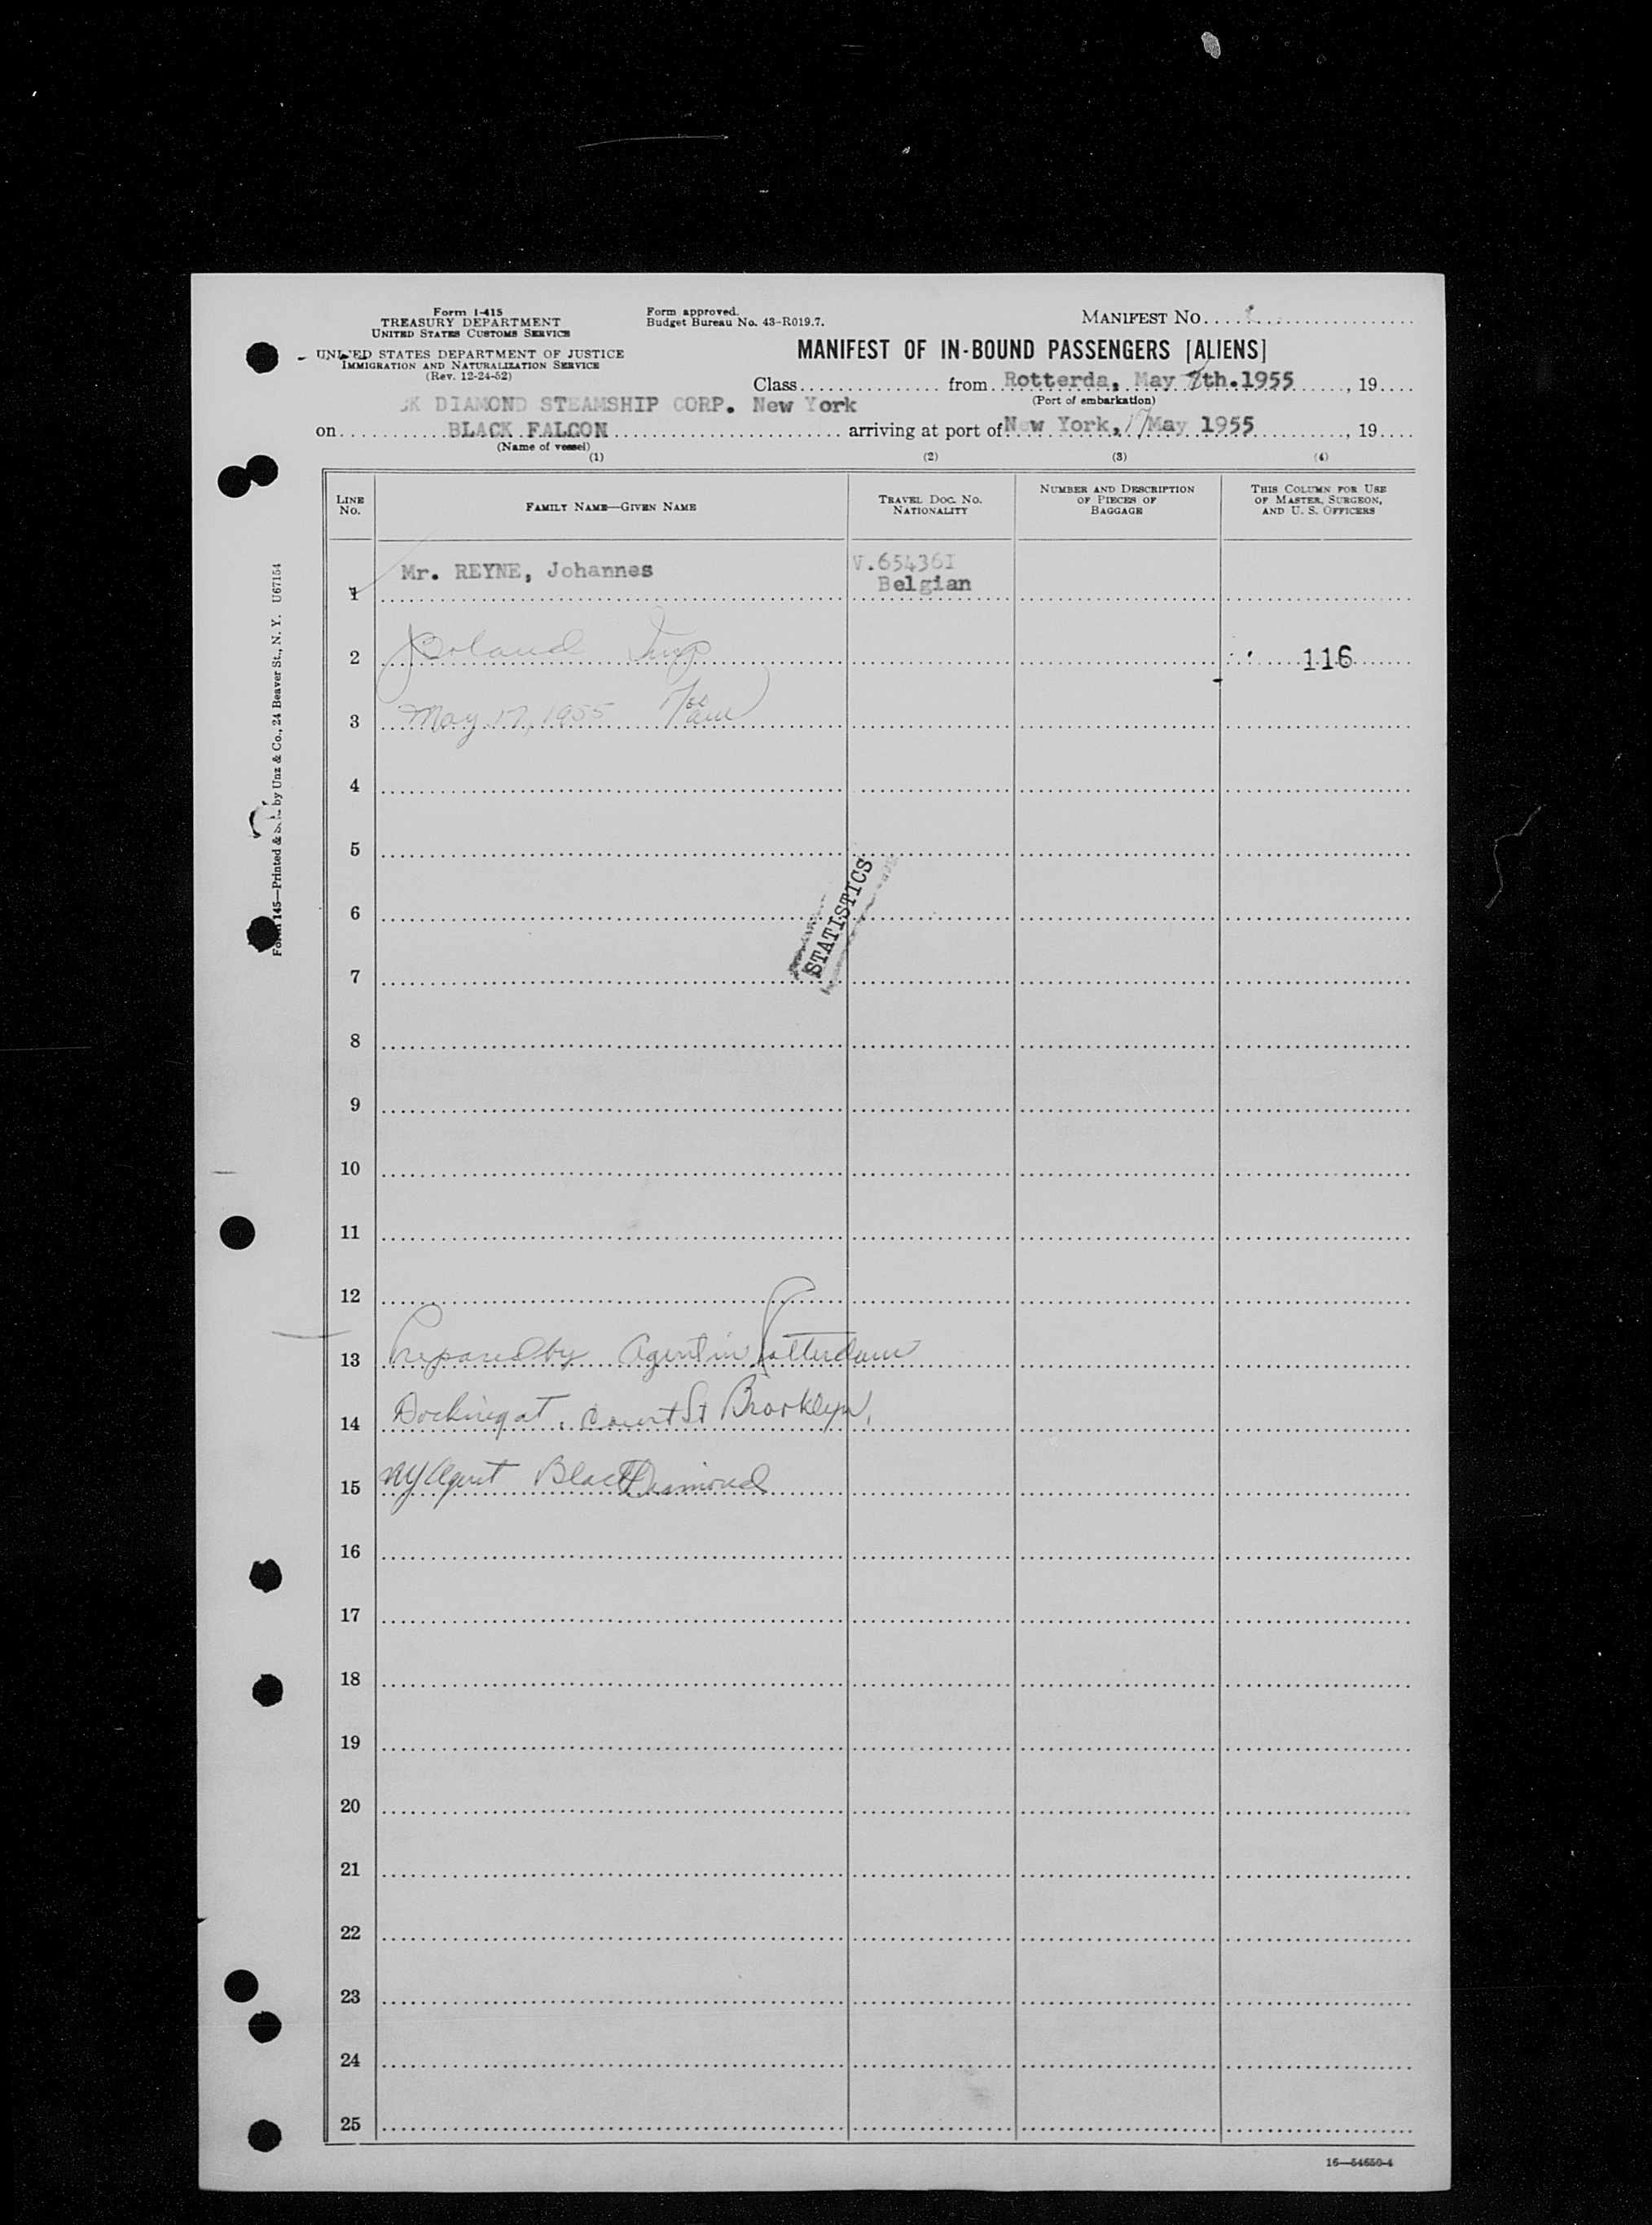 Form I-415
TREASURY DEPARTMENT
UNITED STATES CUSTOMS SERVICE
UNITED STATES DEPARTMENT OF JUSTICE
IMMIGRATION AND NATURALIZATION SERVICE
(Rev. 12-24-52)
Form approved.
Budget Bureau No. 43-R019.7.
MANIFEST NO.
MANIFEST OF IN-BOUND PASSENGERS [ALIENS]
Class from Rotterda, May th.1955, 19
(Port of embarkation)
CK DIAMOND STEAMSHIP CORP. New York
on BLACK FALCON arriving at port of New York, 17 May 1955, 19
(Name of vessel)
(1) (2) (3) (4)
LINE NO.
FAMILY NAME—GIVEN NAME
TRAVEL DOC. NO. NATIONALITY
NUMBER AND DESCRIPTION OF PIECES OF BAGGAGE
THIS COLUMN FOR USE OF MASTER, SURGEON, AND U. S. OFFICERS
1 Mr. REYNE, Johannes V.65436I
Belgian
2 Boland Insp 116
3 May 17, 1955 am
4
5
6
7
STATISTICS
8
9
10
11
12
13 Prepared by Agent in Rotterdam
14 Docking at Court St Brooklyn,
15 NY Agent Black Diamond
16
17
18
19
20
21
22
23
24
25
16—54650-4
Form 145—Printed & Sold by Unz & Co., 24 Beaver St., N. Y. U67154